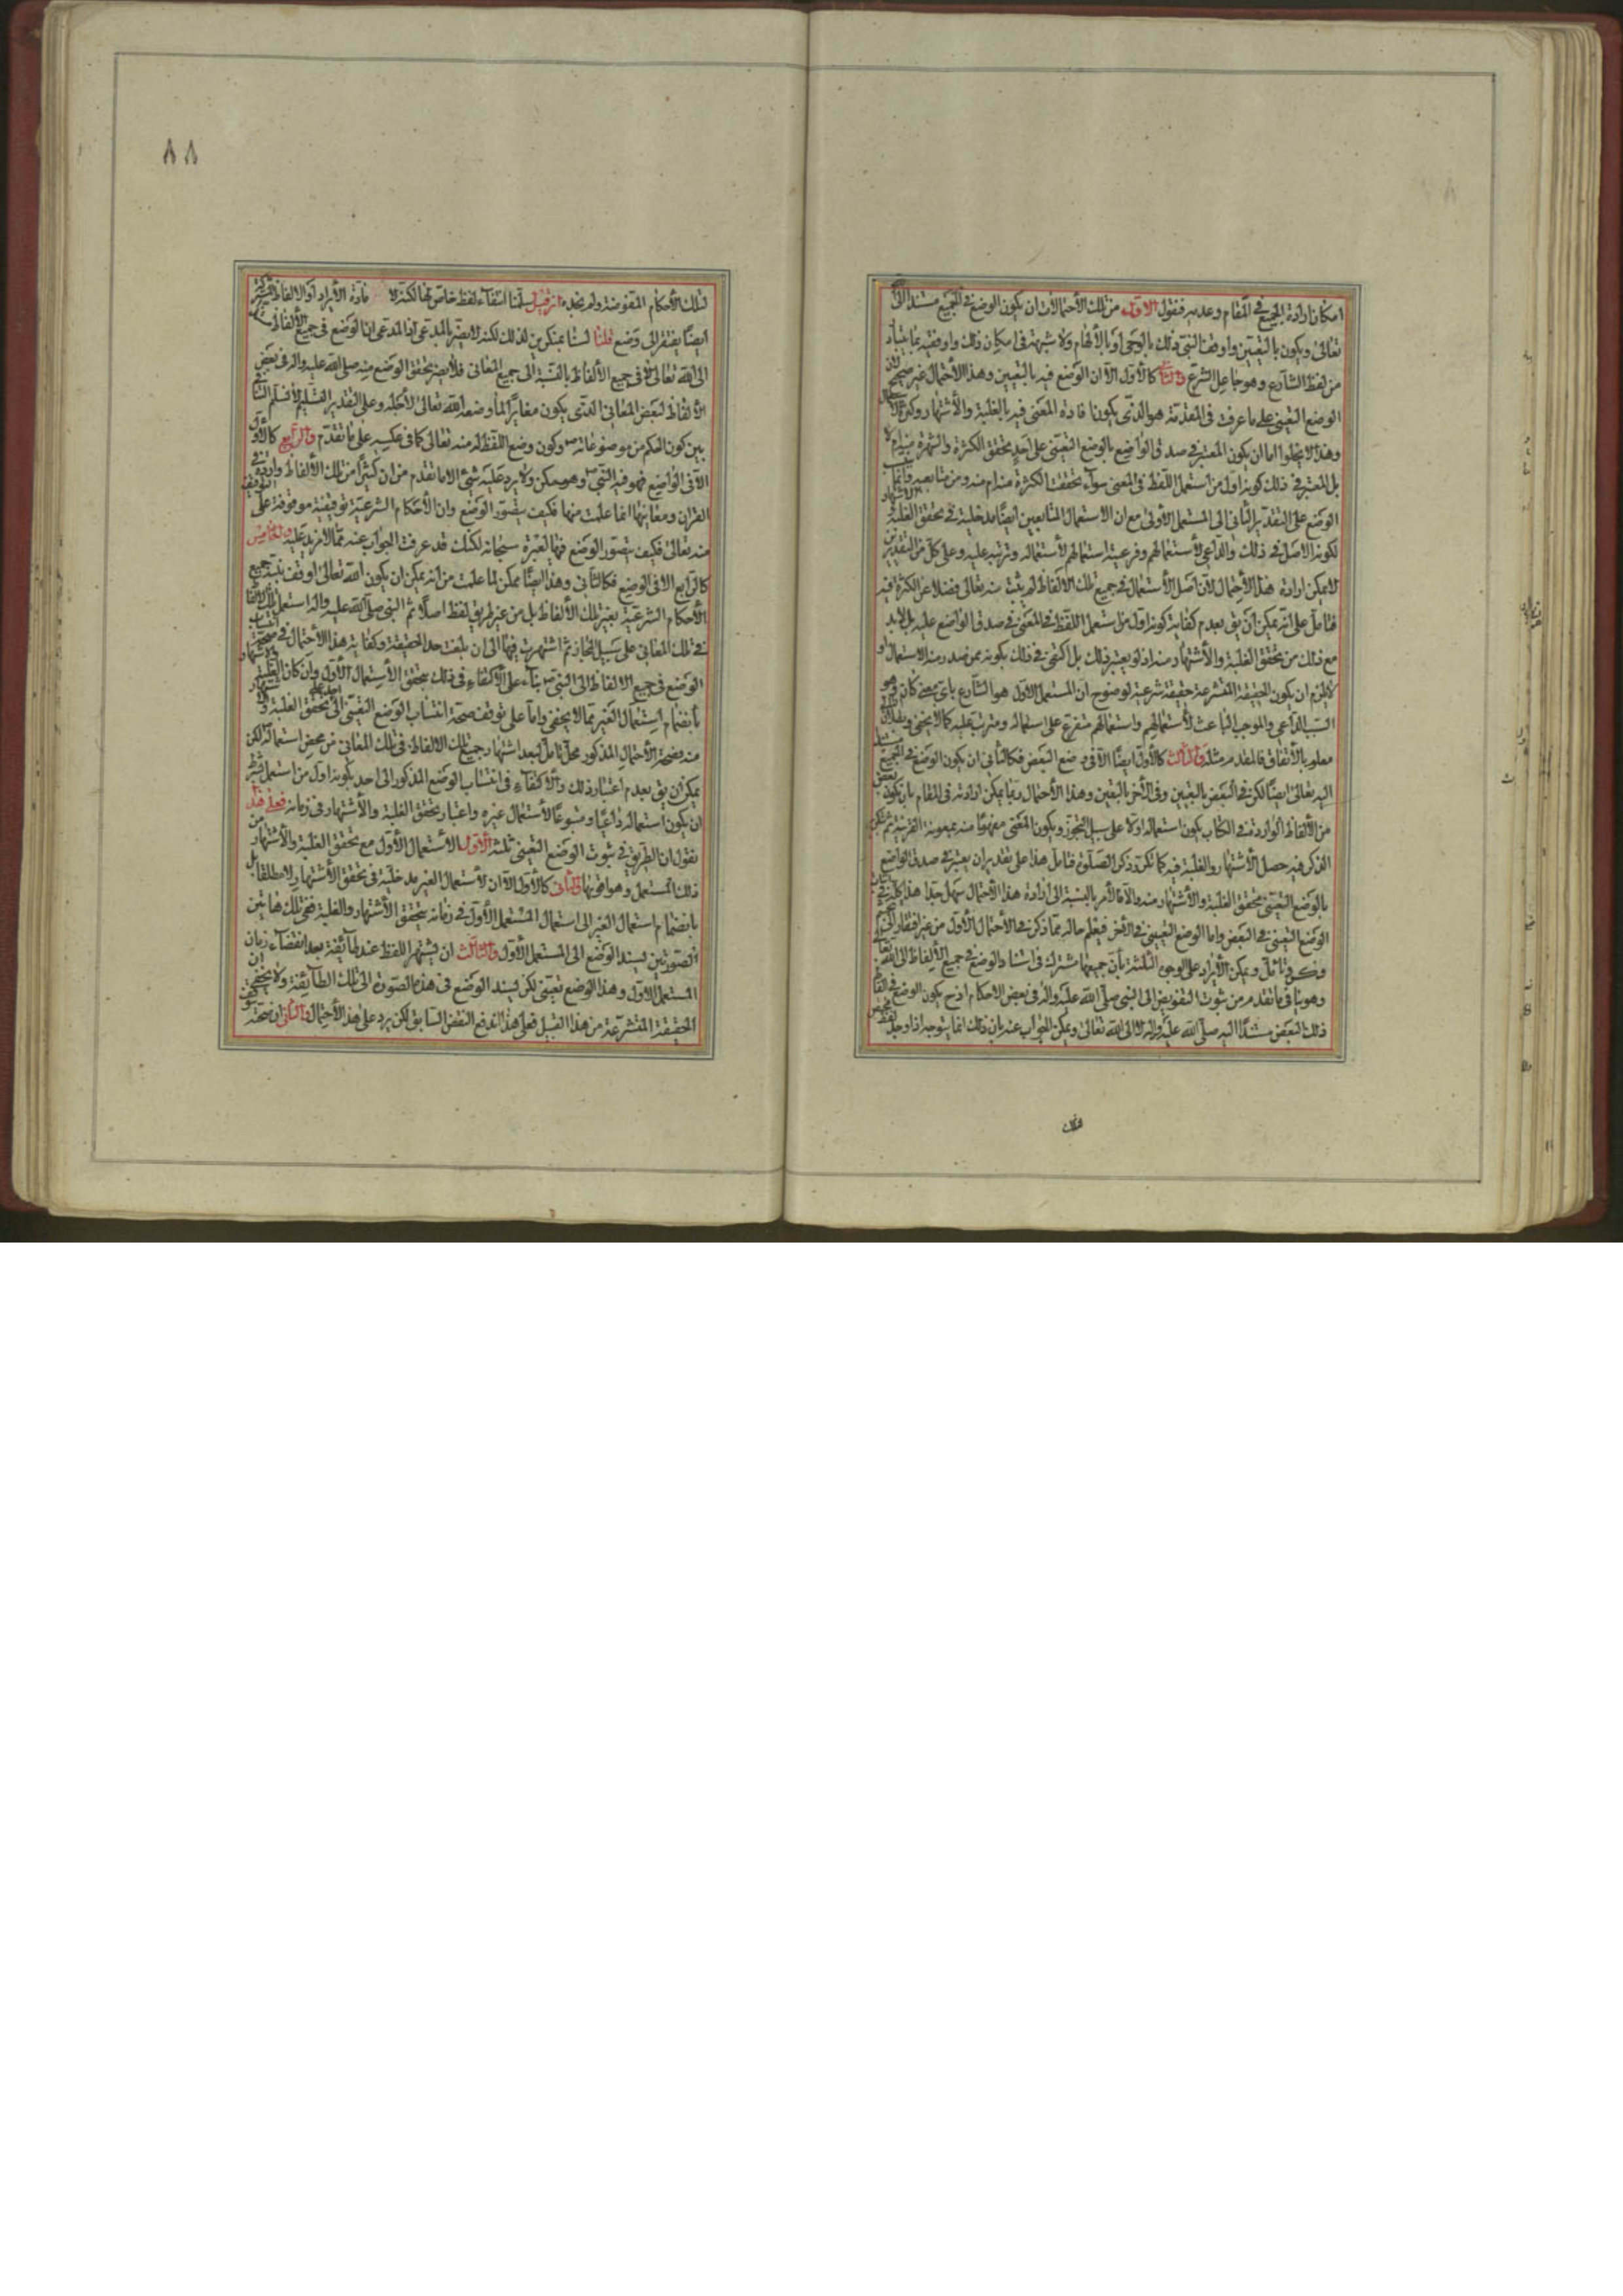 امكان ارادة الجميع في المقام وعدمه فنقول الاول من تلك الاحتمالات ان يكون الوضع في الجميع مستندا الى
تعالى ويكون بالتعيين واوقف النبي بذلك بالوحى او بالالهام ولا شبهة في امكان ذلك
من لفظ الشارع وهو جاعل الشرع والثاني كالاول الا ان الوضع فيه بالتعين وهذا الاحتمال غير صحيح لان
الوضع التعيني على ما عرفت في المقدمة هو الذى يكون افادة المعنى فيه بالغلبة والاشتهار وكثرة الاستعمال
وهذا لا يخلوا اما ان يكون المعتبر في صدق الواضع بالوضع التعيني على احد تحقق الكثرة والشهرة منه ام لا
بل المعتبر في ذلك كونه اول من استعمل اللفظ في المعنى سواء تحققت الكثرة منه ام منه ومن متابعيه
الوضع على التقدير الثاني الى المستعمل الاول مع ان الاستعمال المتابعين ايضا مدخلية في تحقق الغلبة والاشتهار
لكونه الاصل في ذلك والداعي لاستعمالهم وفرعية استعمالهم لاستعماله وترتبه عليه وعلى كل من التقديرين
لا يمكن ارادة هذا الاحتمال لان اصل الاستعمال في جميع تلك الالفاظ لم يثبت منه تعالى فضلا عن الكثرة فيه
فتامل على انه يمكن ان يقى بعدم كفاية كونه اول من استعمل اللفظ في المعنى في صدق الواضع عليه بل لابد
مع ذلك من تحقق الغلبة والاشتهار منه اذ لو لم يعتبر ذلك بل اكتفى في ذلك بكونه ممن صدر منه الاستعمال اولا
لزم ان يكون الحقيقة المتشرعة حقيقة شرعية لوضوح ان المستعمل الاول هو الشارع باى معنى كان وهو
السبب الداعي والموجب الباعث لاستعمالهم واستعمالهم متفرع على استعماله ومترتب عليه كما لا يخفى وبطلان
معلوم بالاتفاق فالمقدم مثله والثالث كالاول ايضا الا في وضع البعض فكالثاني ان يكون الوضع في الجميع
اليه تعالى ايضا لكن في البعض بالتعيين وفي الاخر بالتعين وهذا الاحتمال ربما يمكن ارادته في المقام بان يكون
من الالفاظ الواردة في الكتاب يكون استعماله اولا على سبيل التجوز ويكون المعنى مفهوما منه بمعونة القرينة ثم
الذكر فيه حصل الاشتهار والغلبة فيه كما تكرر ذكر الصلوة فتامل هذا على تقدير ان يعتبر في صدق الواضع
بالوضع التعيني تحقق الغلبة والاشتهار منه والا فالامر بالنسبة الى ارادة هذا الاحتمال سهل جدا هذا كله في
الوضع التعيني في البعض واما الوضع التعييني في الاخر فيعلم حاله مما ذكر في الاحتمال الاول من غير افتقار الى
وفكر وتامل ويمكن الايراد على الوجوه الثلثة بان جميعها مشترك في استناد الوضع في جميع الالفاظ الى الله تعالى
وهو ينافي ما تقدم من ثبوت التفويض الى النبي صلى الله عليه واله في بعض الاحكام اذ ح يكون الوضع في
ذلك البعض مستندا اليه صلى الله عليه واله لا الى الله تعالى ويمكن الجواب عنه بان ذلك انما يتوجه اذا وجد لفظ
٨٨
لتلك الاحكام المفوضة ولم نجده ان قيل سلمنا انتفاء لفظ خاص بها لكنه لا مادة الايراد او الالفاظ المشتركة
ايضا يفتقر الى وضع قلنا لسنا بمنكرين لذلك لكنه لا يضر بالمدعى اذ المدعى ان الوضع في جميع الالفاظ
الى الله تعالى في جميع الالفاظ بالنسبة الى جميع المعاني فلا يضر تحقق الوضع منه صلى الله عليه واله في بعض
الالفاظ لبعض المعاني الذى يكون مغايرا لما وضعه الله تعالى لاجله وعلى التقدير التسليم لا نسلم
بين كون الحكم من موضوعاته وكون وضع اللفظ له منه تعالى كما في عكسه على ما تقدم والرابع كالاول
الا في الواضع فهو فيه النبي ص وهو ممكن ولا يرد عليه شئ الا ما تقدم من ان كثيرا من تلك الالفاظ واردة في
القران ومعانيها انما علمت منها فكيف يتصور الوضع وان الاحكام الشرعية توقيفية موقوفة على
منه تعالى فكيف يتصور الوضع فيها لغيره سبحانه لكنك قد عرفت الجواب عنه بما لا مزيد عليه والخامس
كالرابع الا في الوضع فكالثاني وهذا ايضا ممكن لما علمت من انه يمكن ان يكون الله تعالى اوقف نبيه جميع
الاحكام الشرعية بغير تلك الالفاظ بل من غير طريق لفظ اصلا ثم النبي صلى الله عليه واله استعمل تلك الالفاظ
في تلك المعاني على سبيل المجاز ثم اشتهرت فيها الى ان بلغت حد الحقيقة وكفاية هذا الاحتمال في صحة
الوضع في جميع الالفاظ الى النبي ص بناء على الاكتفاء في ذلك بتحقق الاستعمال الاول وان كان الغلبة
بانضمام استعمال الغير مما لا يخفى واما على توقف صحة انتساب الوضع التعيني الى تحقق الغلبة
منه وصحة الاحتمال المذكور محل تامل لبعد اشتهار جميع تلك الالفاظ في تلك المعاني من محض استعماله لكن
يمكن ان يقى بعدم اعتبار ذلك والاكتفاء في انتساب الوضع المذكور الى احد بكونه اول من استعمل بشرط
ان يكون استعماله داعيا ومتبوعا لاستعمال غيره واعتبار تحقق الغلبة والاشتهار في زمانه فعلى هذا
نقول ان الطريق في ثبوت الوضع التعيني ثلثة الاول الاستعمال الاول مع تحقق الغلبة والاشتهار من
ذلك المستعمل وهو اقويها والثاني كالاول الا ان لاستعمال الغير مدخلية في تحقق الاشتهار لا مطلقا بل
بانضمام استعمال الغير الى استعمال المستعمل الاول في زمانه بتحقق الاشتهار والغلبة ففي تلك هاتين
الصورتين يسند الوضع الى المستعمل الاول والثالث ان يشتهر اللفظ عند طائفة بعد انقضاء زمان
المستعمل الاول وهذا الوضع تعيني لكن يسند الوضع في هذه الصورة الى تلك الطائفة ولا يخفى ان
الحقيقة المتشرعة من هذا القبيل فعلى هذا اندفع النقض السابق لكن يرد على هذا الاحتمال والثاني ان صحة